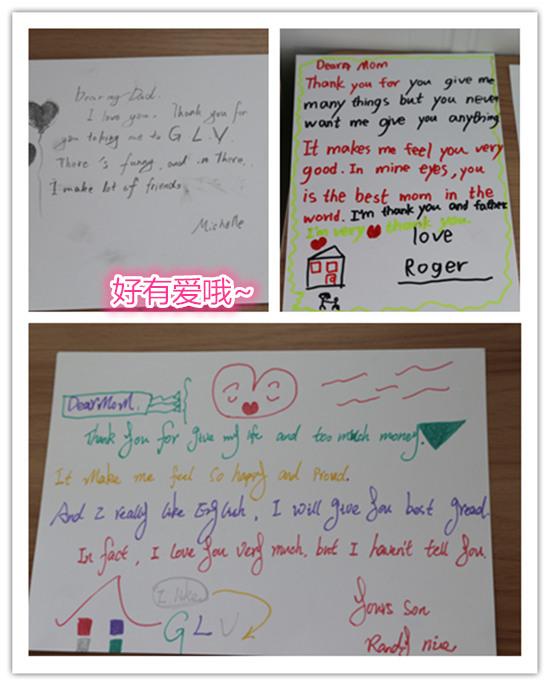 Dear my Dad.
I love you. Thank you for
you taking me to GLV
There's funny, and in there,
I make lot of friends
Michelle
好有爱哦~
Dear Mom
Thank you for you give me
many things but you never
want me give you anything
It makes me feel you very
good. In mine eyes, you
is the best mom in the
world. I'm thank you and father
I'm very thank you.
love
Roger
Dear Mom.
Thank you for give my life and too much money.
It Make me feel so happy and Proud.
And I really like English, I will give you best gread
In fact, I love you very much, but I haven't tell you.
I like
GLV
Yours son
Randy nice